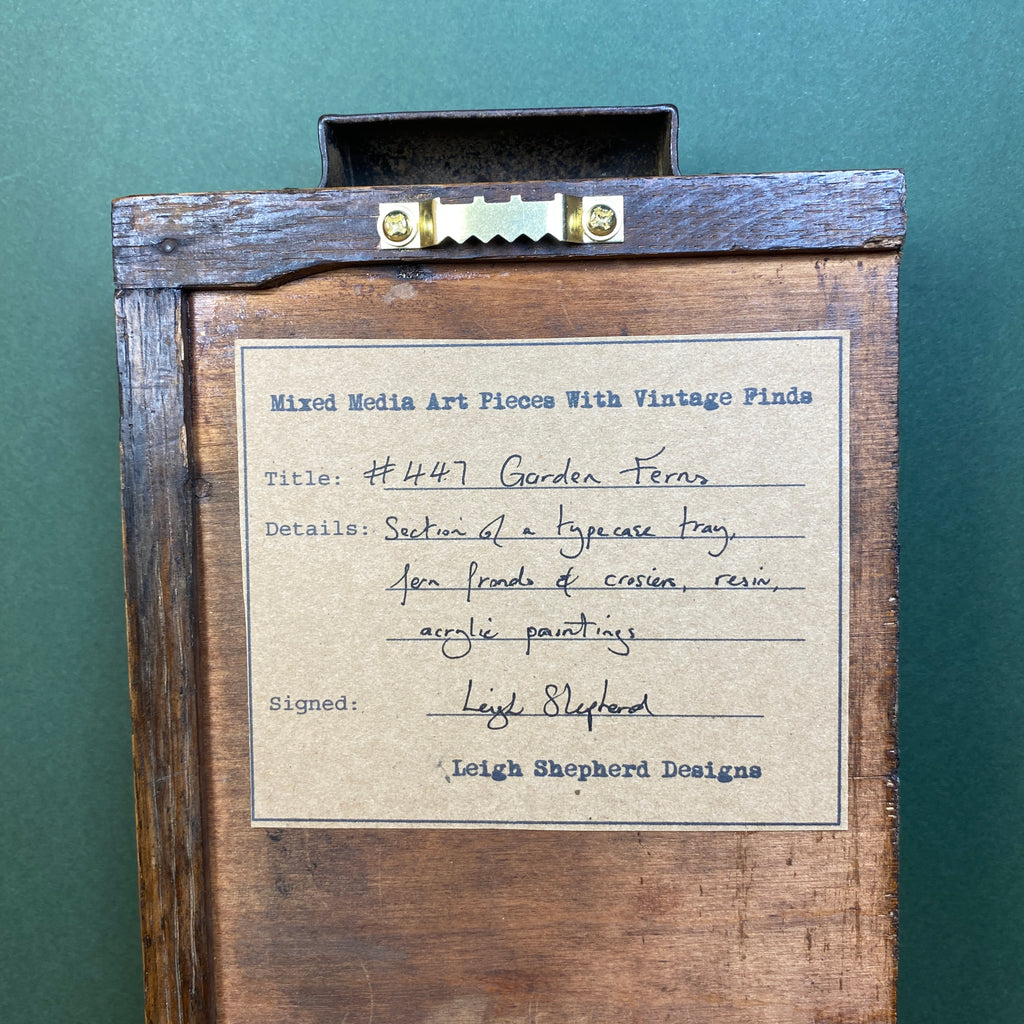 Mixed Media Art Pieces With Vintage Finds
Title: #447 Garden Ferns
Details: Section of a typecase tray,
fern fronds & crosiers, resin,
acrylic paintings
Signed: Leigh Shepherd
Leigh Shepherd Designs